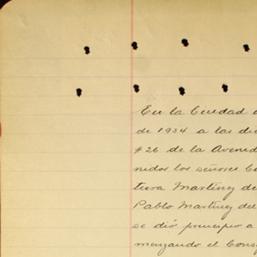 En la Ciudad
de 1934 a las
#26 de la Avenid
nidos los señores
tura Martinez de
Pablo Martinez del
se dió principio a
menzando el Cons